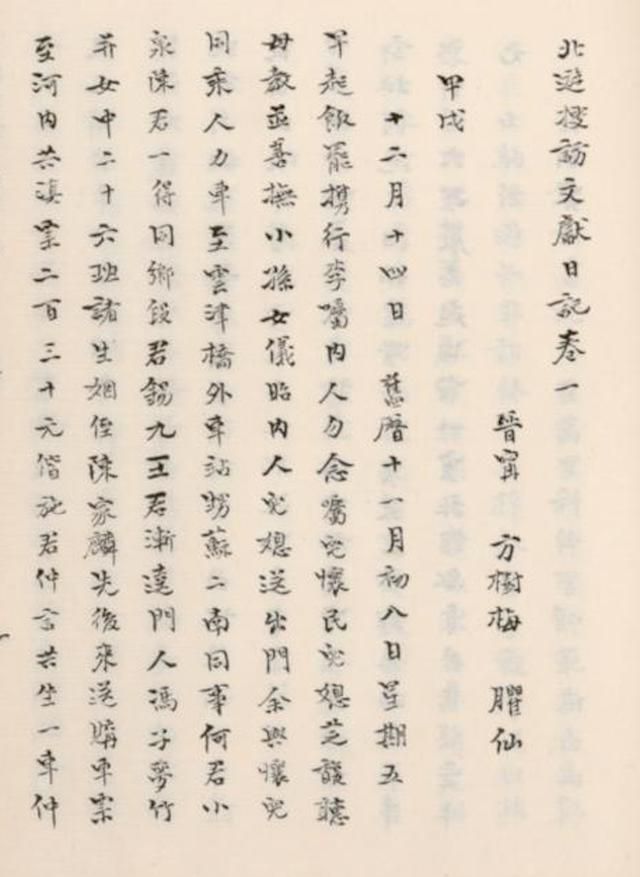 北遊搜訪文獻日記卷一
晉甯 方樹梅 臞仙
甲戌
十二月十四日舊曆十一月初八日星期五
早起飯罷攜行李囑內人勿念囑兒懷民兒媳芝馥聽
母教並善撫小孫女儀昭內人兒媳送出門余與懷兒
同乘人力車至雲津橋外車站甥蘇二南同事何君小
泉陳君一得同鄉段君錫九王君漸逵門人馮子夢竹
并女中二十六班諸生姻侄陳家麟先後來送購車票
至河內共滇票二百三十元偕施君仲言共坐一車仲